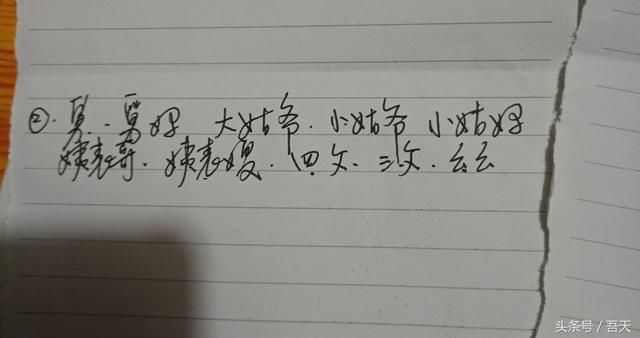 ②. 舅. 舅 大姑爷. 小姑爷 小姑
姨表哥. 姨表嫂. 四文. 三文.
头条号 / 吾天